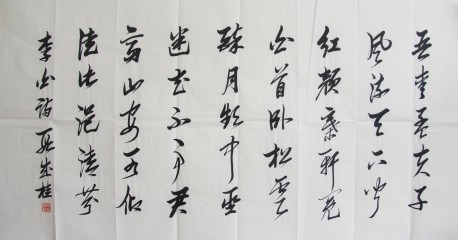 吾爱孟夫子
风流天下闻
红颜弃轩冕
白首卧松云
醉月频中圣
迷花不事君
高山安可仰
徒此挹清芬
李白诗 成桂